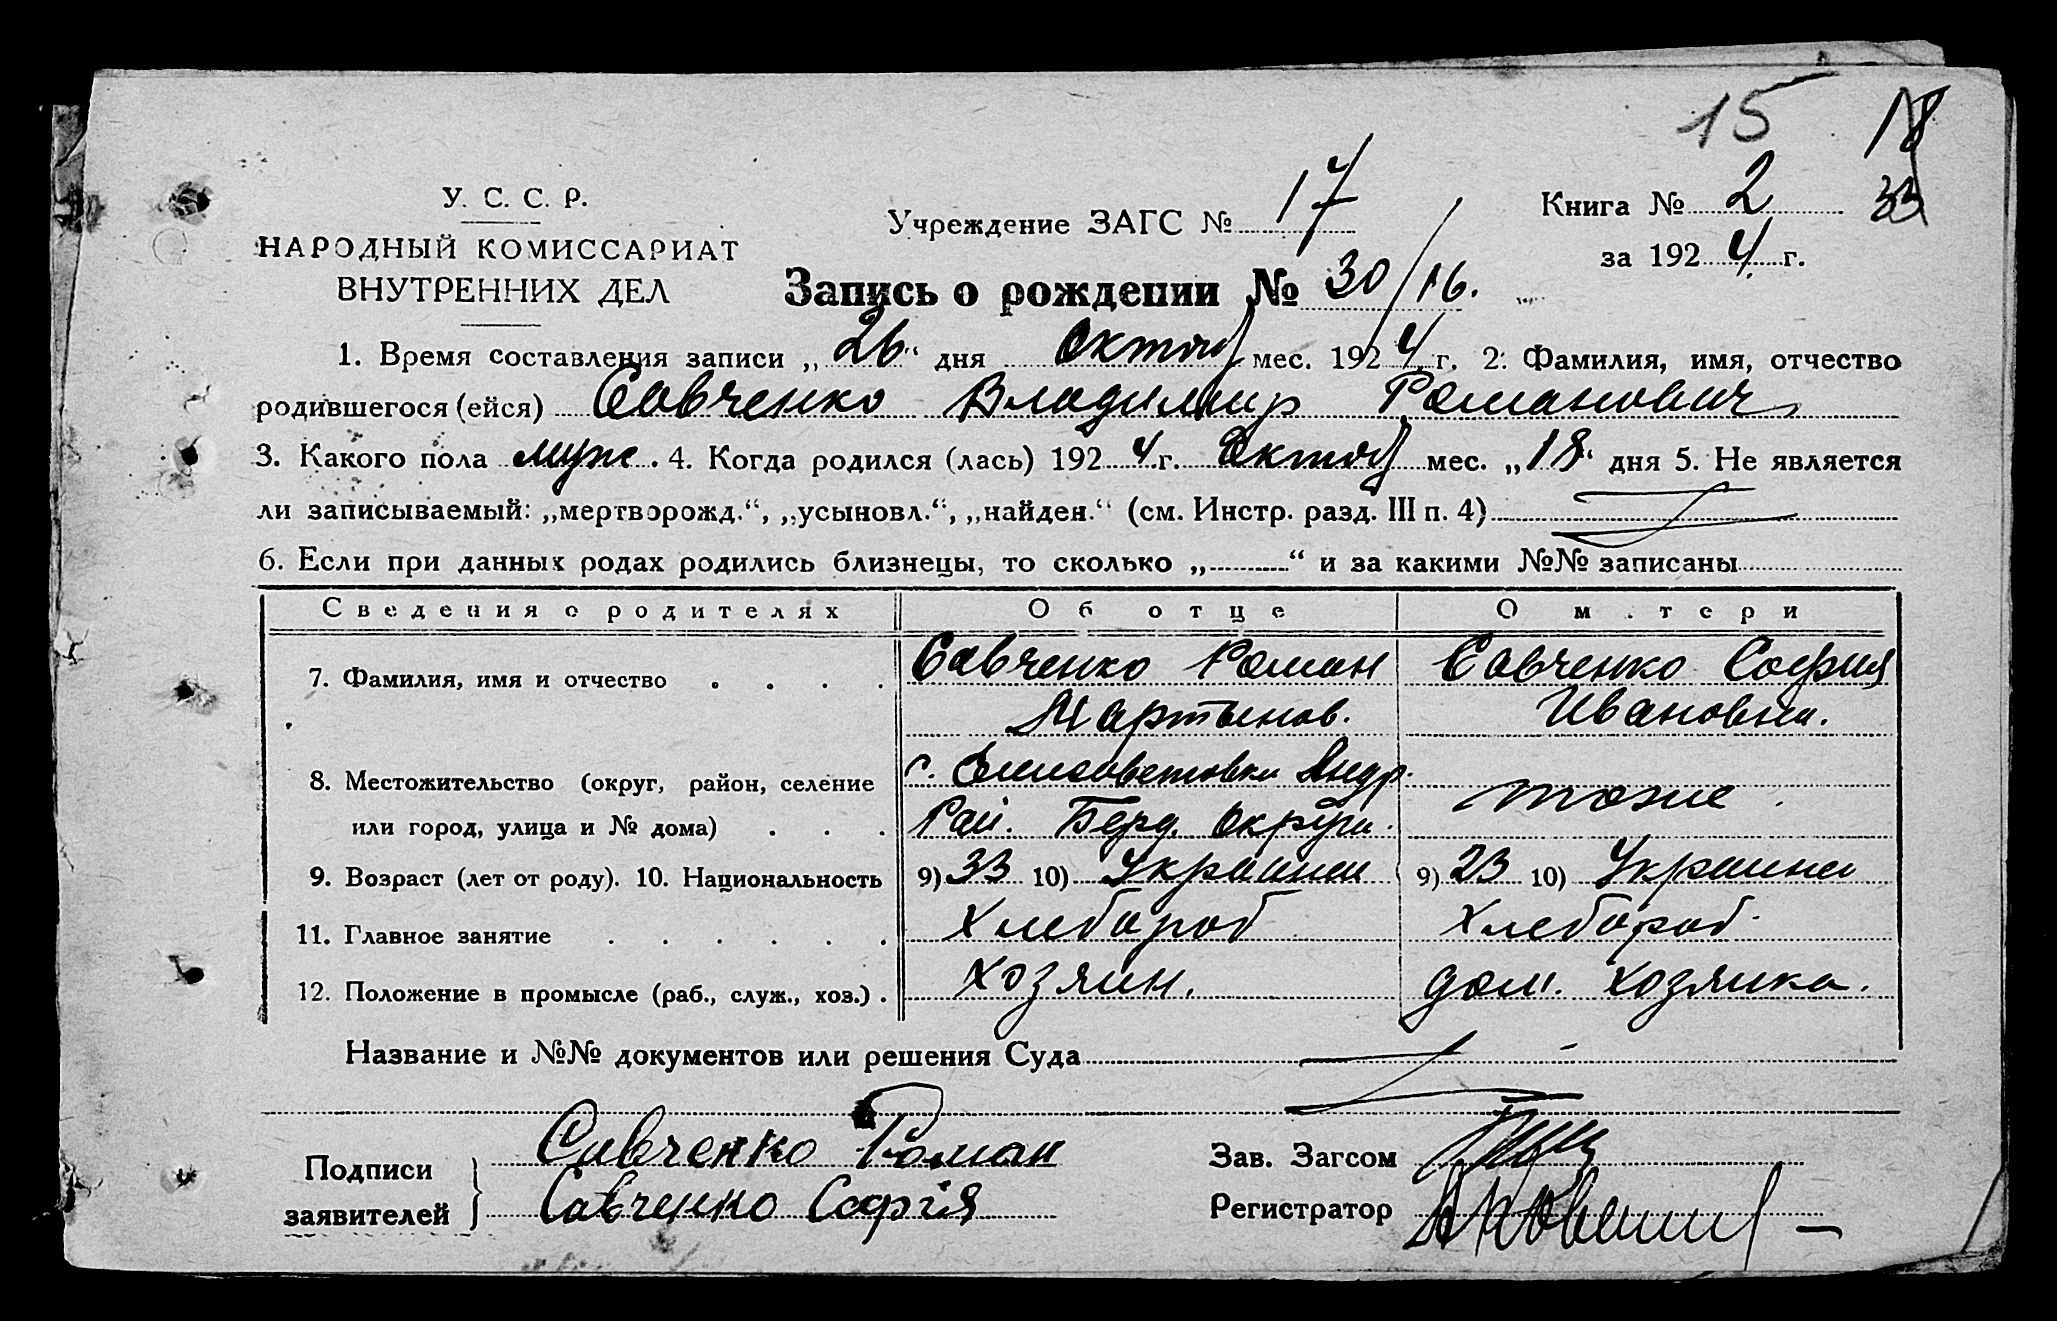 15 18
33
У. С. С. Р.
НАРОДНЫЙ КОМИССАРИАТ
ВНУТРЕННИХ ДЕЛ
Учреждение ЗАГС № 17
Книга № 2
за 1924 г.
Запись о рождении № 30/16.
1. Время составления записи „26“ дня Октяб мес. 1924 г. 2. Фамилия, имя, отчество
родившегося (ейся) Савченко Владимир Романович
3. Какого пола муж. 4. Когда родился (лась) 1924 г. Октяб мес. „18“ дня 5. Не является
ли записываемый: „мертворожд.“, „усыновл.“, „найден.“ (см. Инстр. разд. III п. 4)
6. Если при данных родах родились близнецы, то сколько „ “ и за какими №№ записаны
Сведения о родителях Об отце О м.тери
7. Фамилия, имя и отчество Савченко Роман Савченко София
Мартынов. Ивановна.
8. Местожительство (округ, район, селение с. Елисаветовки Андр.
или город, улица и № дома) Рай. Берд. Округи. тоже.
9. Возраст (лет от роду). 10. Национальность 9) 33 10) Украинец 9) 23 10) Украинка
11. Главное занятие Хлебороб Хлебороб.
12. Положение в промысле (раб., служ., хоз.). Хозяин. дом. хозяйка.
Название и №№ документов или решения Суда
Подписи
заявителей
Савченко Роман
Савченко Софія
Зав. Загсом
Регистратор